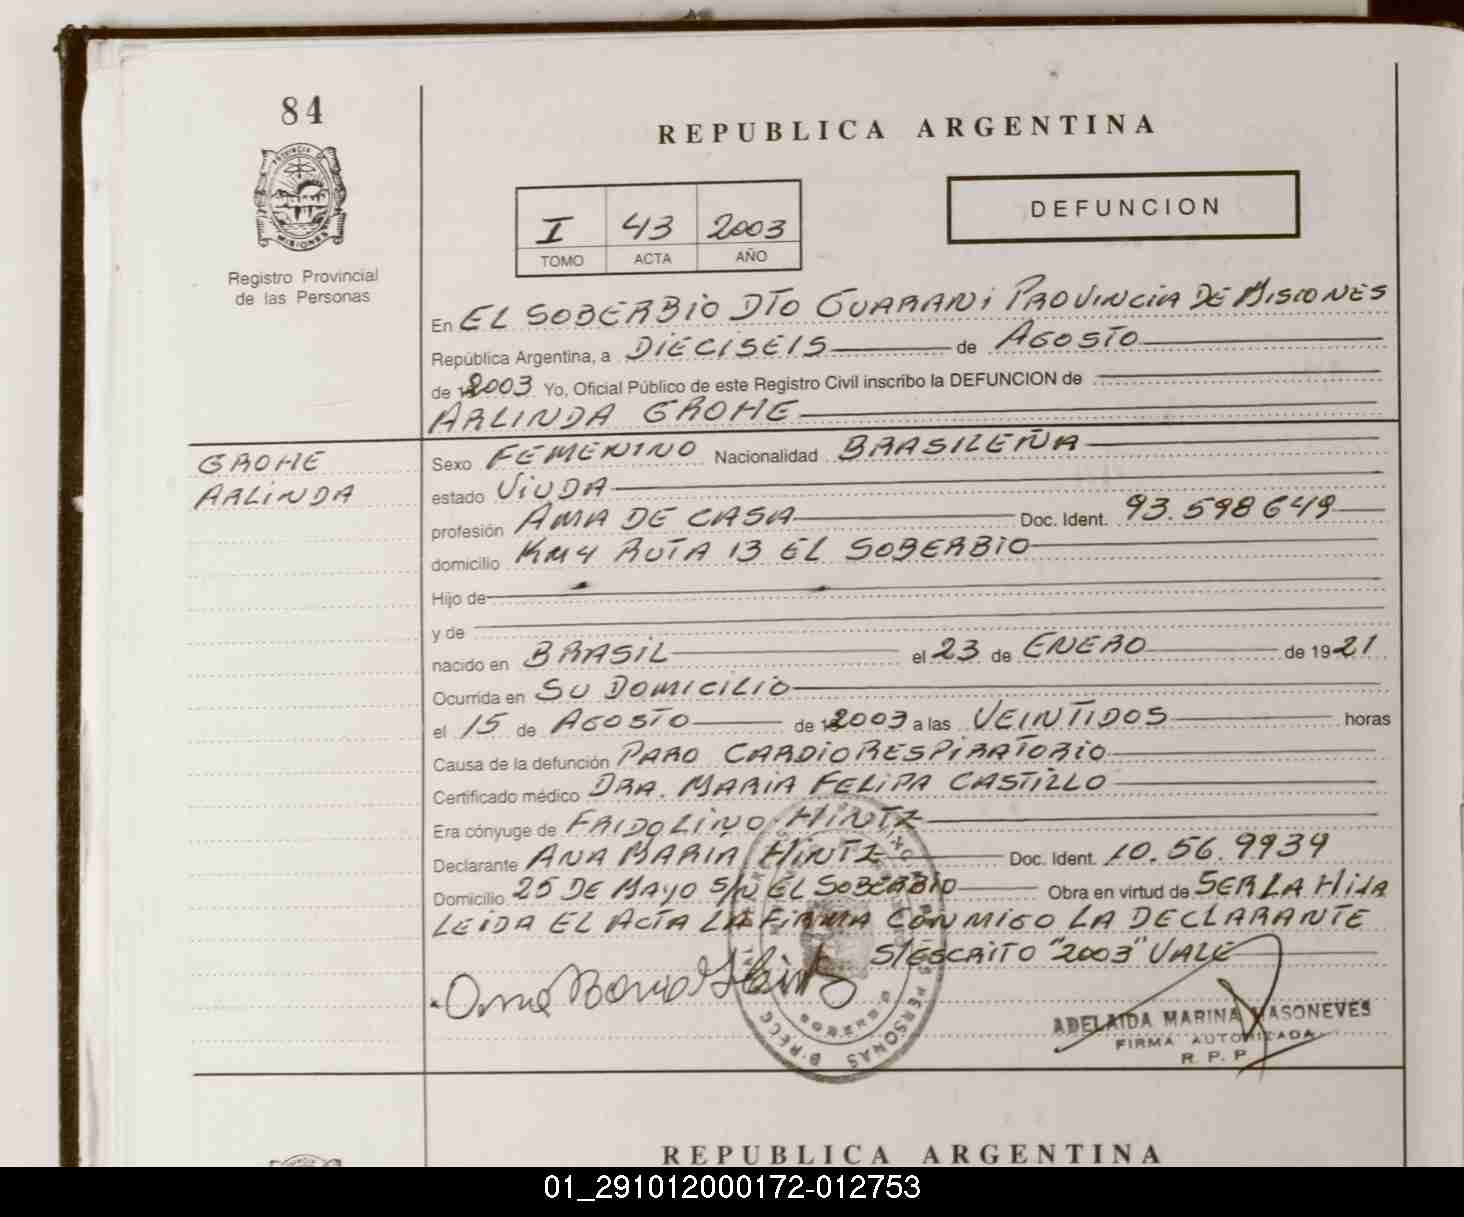 84
REPUBLICA ARGENTINA
PROVINCIA DE
MISIONES
Registro Provincial
de las Personas
I 43 2003
TOMO ACTA AÑO
DEFUNCION
En EL SOBERBIO DTO GUARANI PROVINCIA DE MISIONES
República Argentina, a DIECISEIS de AGOSTO
de 2003 Yo, Oficial Público de este Registro Civil inscribo la DEFUNCION de
ARLINDA GROHE
GROHE
ARLINDA
Sexo FEMENINO Nacionalidad BRASILEÑA
estado VIUDA
profesión AMA DE CASA Doc. Ident. 93.598649
domicilio KM 4 RUTA 13 EL SOBERBIO
Hijo de
y de
nacido en BRASIL el 23 de ENERO de 1921
Ocurrida en SU DOMICILIO
el 15 de AGOSTO de 2003 a las VEINTIDOS horas
Causa de la defunción PARO CARDIORESPIRATORIO
Certificado médico DRA. MARIA FELIPA CASTILLO
Era cónyuge de FRIDOLINO HINTZ
Declarante ANA MARIA HINTZ Doc. Ident. 10.56.9939
Domicilio 25 DE MAYO S/N EL SOBERBIO Obra en virtud de SER LA HIJA
LEIDA EL ACTA LA FIRMA CONMIGO LA DECLARANTE
S/ESCRITO "2003" VALE
PERSONAS
ADELAIDA MARINA MASONEVES
FIRMA AUTORIZADA
R. P. P
REPUBLICA ARGENTINA
01_291012000172-012753